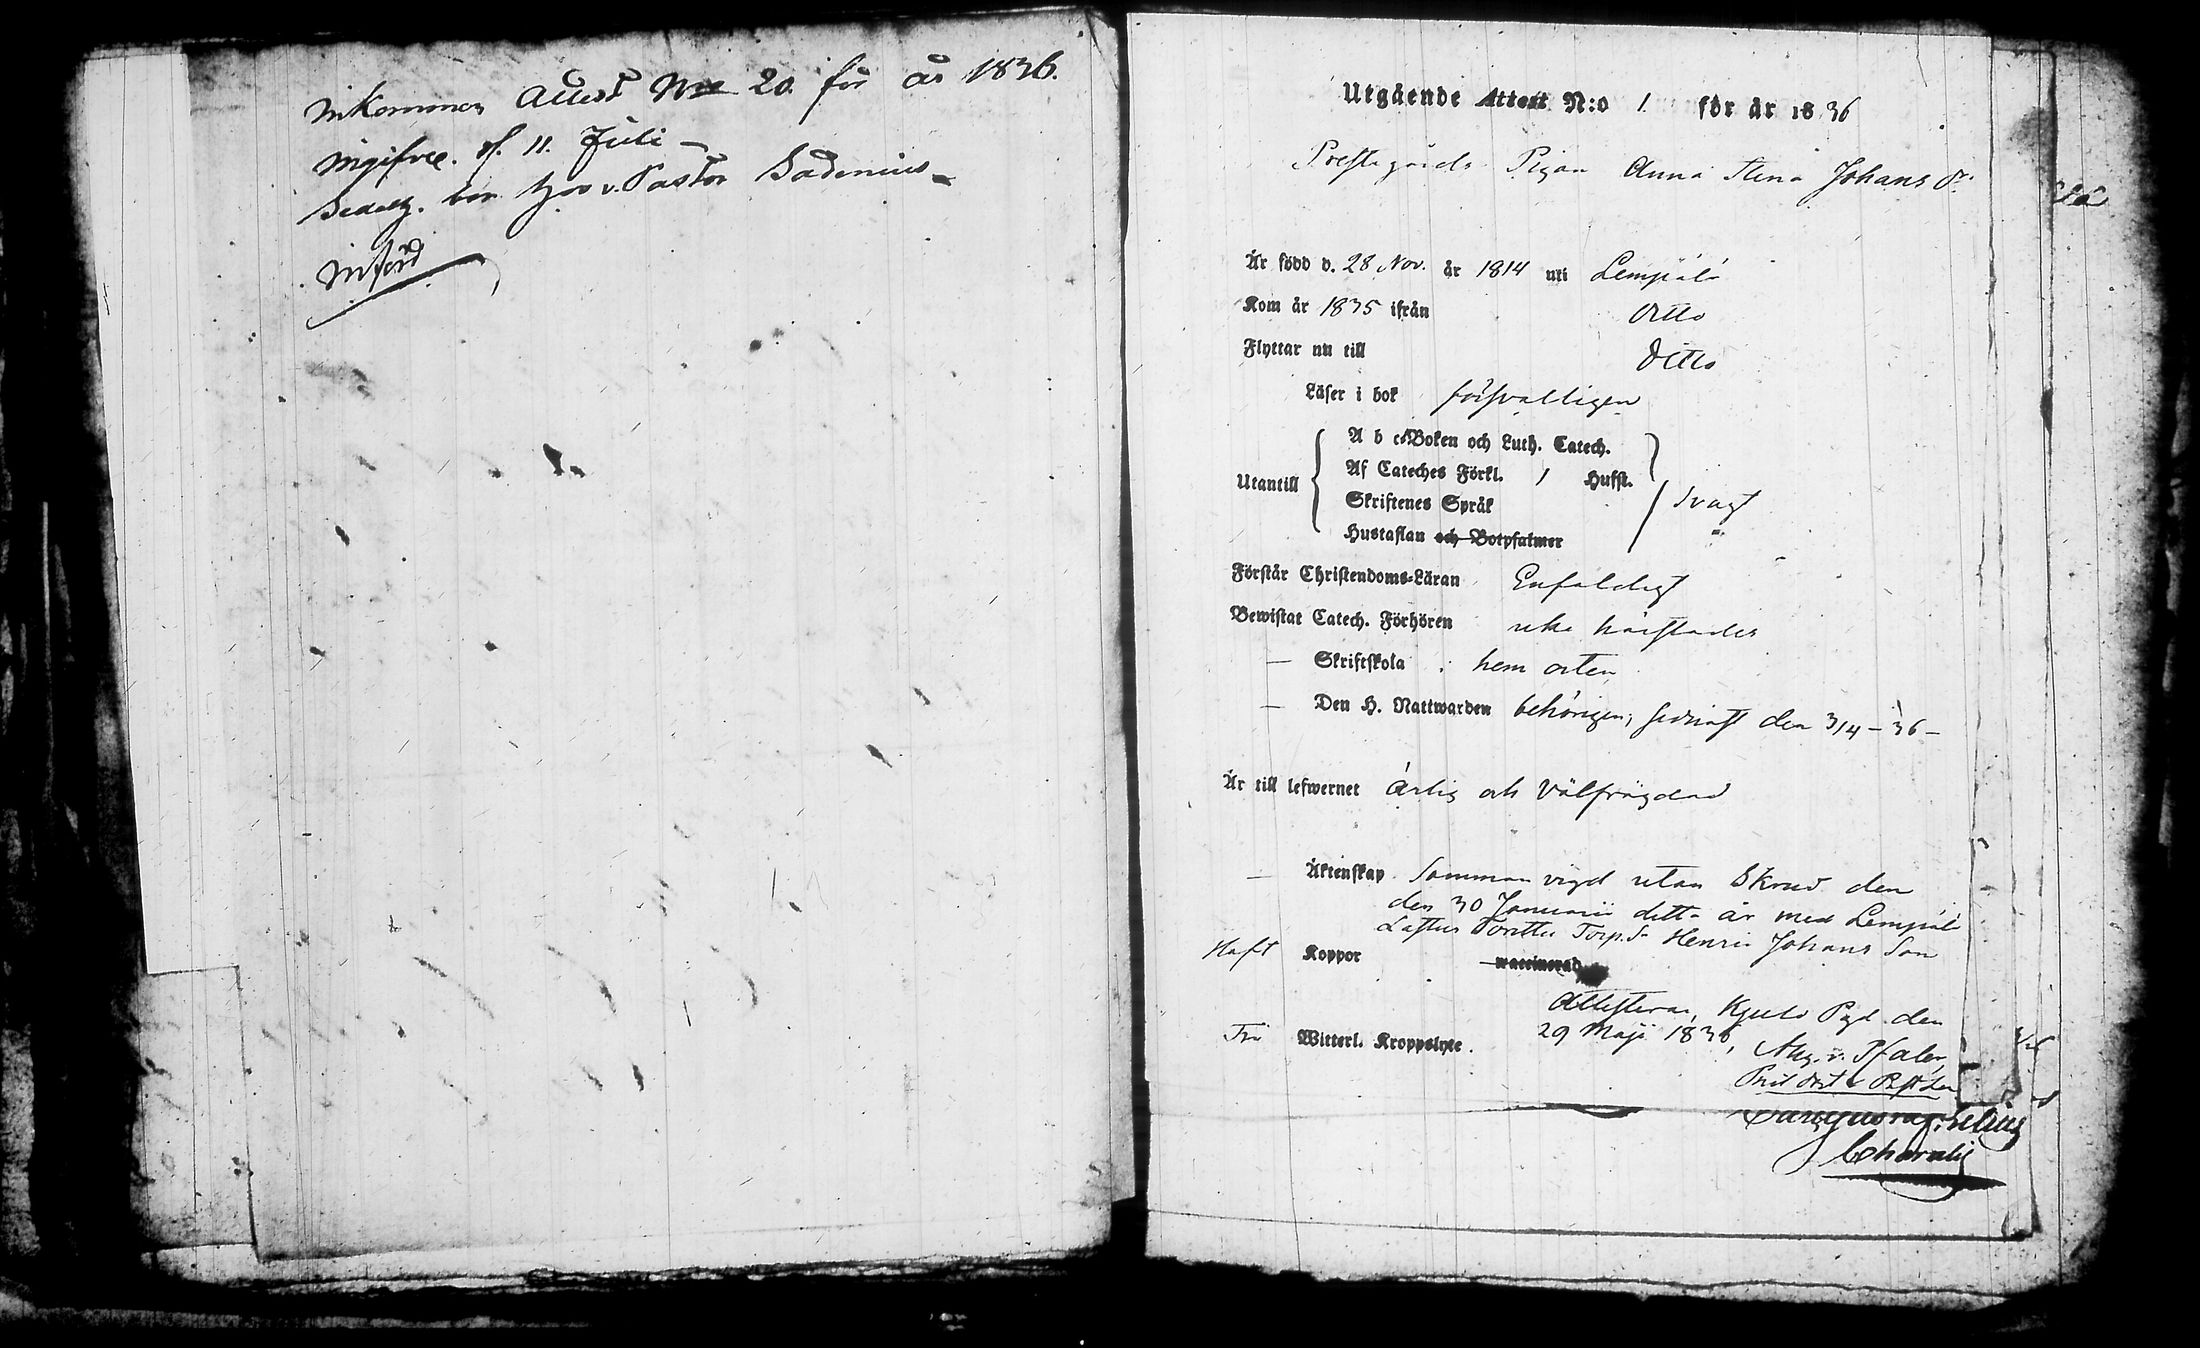 Inkommen Attest No 20. för år 1836.
11. Juli
Pastor
Införd
Utgående Attest N:o 1 för år 1836
Prestegårds Pigan Anna Stina Johans dr
Är född d. 28 Nov. år 1814 uti Lempälä
Kom år 1835 ifrån Ditto
Flyttar nu till Ditto
Läser i bok försvarligen
A b c-Boken och Luth. Catech.
Af Cateches Förkl. 1 Hufst.
Utantill Svagt
Skriftenes Språk
Hustaflan och Botpsalmer
Förstår Christendoms-Läran Enfaldigt
Bewistat Catech. Förhören icke härstädes
— Skriftskola i hem orten
— Den H. Nattwarden behörigen, sednast den 3/4 - 36 -
Är till lefwernet ärlig och välfrägdad
— Äktenskap Samman vigd utan Skrud den
den 30 Januarii detta år med Lempälä
Torp. S. Henric Johans Son
Haft Koppor waccinerad
Attesterar, Pgd. den
29 Maji 1836,
Fri Witterl. Kroppslyte. Aug. v. Pfaler